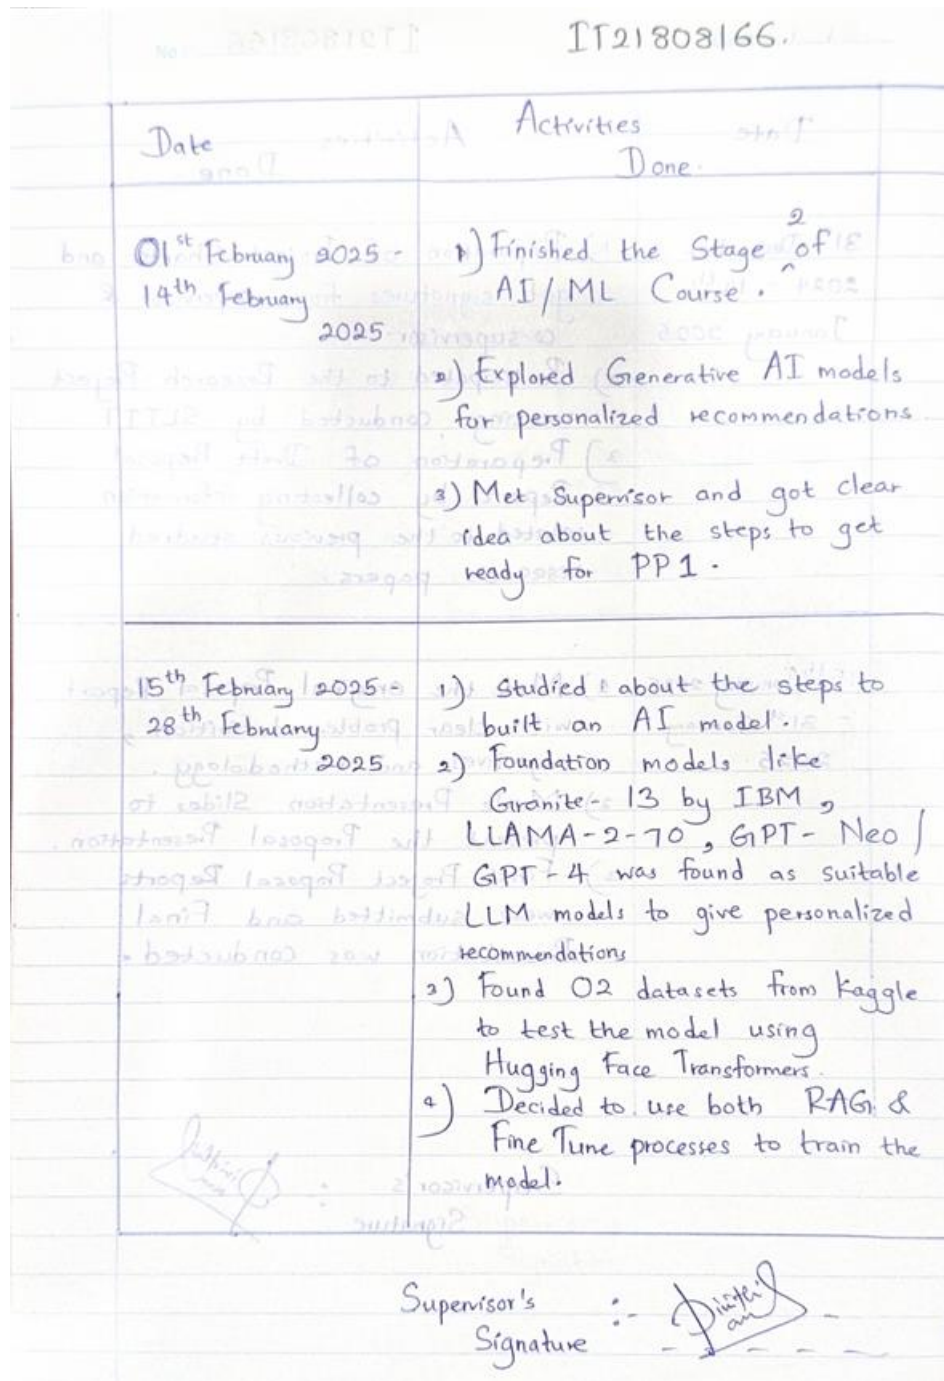 IT21808166.
Date
Activities
Done.
01st February 2025 -
14th February
2025
1) Finished the Stage 2 of
AI/ML Course.
2) Explored Generative AI models
for personalized recommendations
3) Met Supervisor and got clear
idea about the steps to get
ready for PP1.
15th February 2025 -
28th February
2025
1) Studied about the steps to
built an AI model.
2) Foundation models like
Granite-13 by IBM,
LLAMA-2-70, GPT-Neo/
GPT-4 was found as suitable
LLM models to give personalized
recommendations
3) Found 02 datasets from Kaggle
to test the model using
Hugging Face Transformers.
4) Decided to use both RAG &
Fine Tune processes to train the
model.
Supervisor's :-
Signature